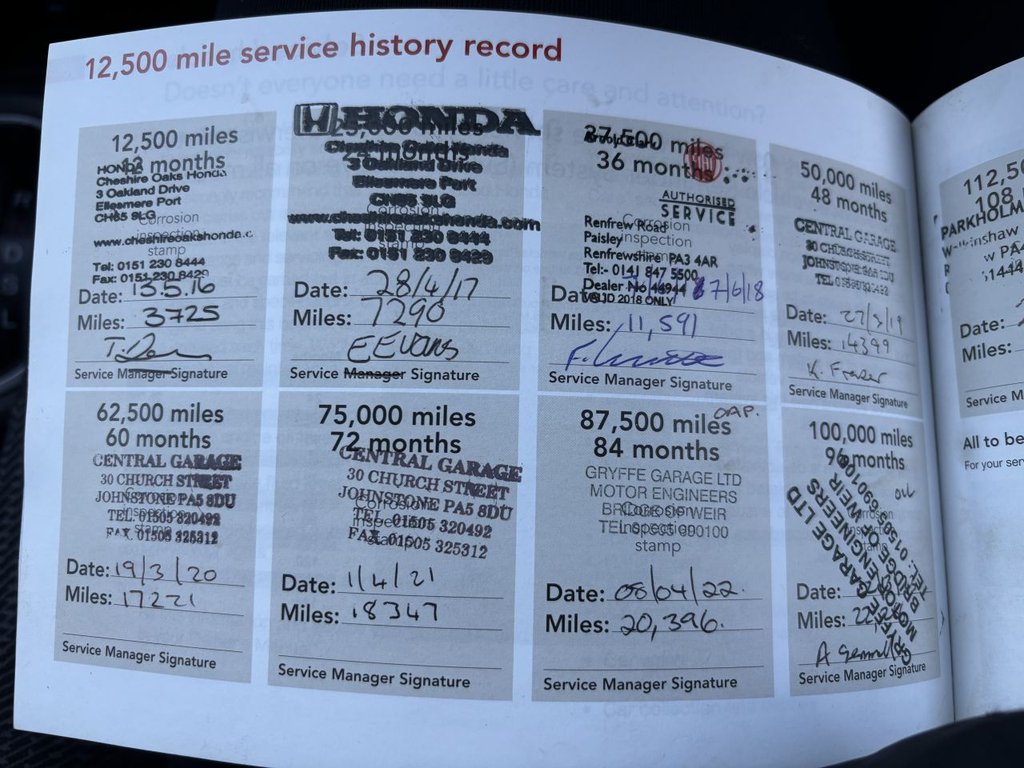 12,500 mile service history record
12,500 miles
12 months
HONDA
Cheshire Oaks Honda
3 Oakland Drive
Ellesmere Port
CH65 9LG
Corrosion
inspection
stamp
www.cheshireoakshonda.c
Tel: 0151 230 8444
Fax: 0151 230 8429
Date: 13.5.16
Miles: 3725
Service Manager Signature
HONDA
25,000 miles
months
Cheshire Oaks Honda
3 Oakland Drive
Ellesmere Port
CH65 9LG
Corrosion
www.cheshireoakshonda.com
Tel: 0151 230 8444
Fax: 0151 230 8429
Date: 28/4/17
Miles: 7290
E Evans
Service Manager Signature
37,500 miles
Arnold Clark
36 months
AUTHORISED
SERVICE
Renfrew Road
Corrosion
Paisley
inspection
Renfrewshire PA3 4AR
Tel:- 0141 847 5500
Dealer No 46944
VALID 2018 ONLY
Date: 7/6/18
Miles: 11,591
Service Manager Signature
50,000 miles
48 months
CENTRAL GARAGE
30 CHURCH STREET
JOHNSTONE PA5 8DU
TEL. 01505 320492
Date: 27/3/19
Miles: 14399
K. Fraser
Service Manager Signature
62,500 miles
60 months
CENTRAL GARAGE
30 CHURCH STREET
JOHNSTONE PA5 8DU
TEL. 01505 320492
FAX. 01505 325312
Date: 19/3/20
Miles: 17221
Service Manager Signature
75,000 miles
72 months
CENTRAL GARAGE
30 CHURCH STREET
JOHNSTONE PA5 8DU
Corrosion
TEL. 01505 320492
inspection
FAX. 01505 325312
stamp
Date: 1/4/21
Miles: 18347
Service Manager Signature
87,500 miles
OAP.
84 months
GRYFFE GARAGE LTD
MOTOR ENGINEERS
BRIDGE OF WEIR
Corrosion
TEL: 01505 690100
inspection
stamp
Date: 08/04/22.
Miles: 20,396.
Service Manager Signature
100,000 miles
96 months
GRYFFE GARAGE LTD
MOTOR ENGINEERS
BRIDGE OF WEIR
TEL: 01505 690100
Date:
Miles: 22
Service Manager Signature
112,50
108
PARKHOLM
w PA4
Date:
Miles:
Service M
All to be
For your serv